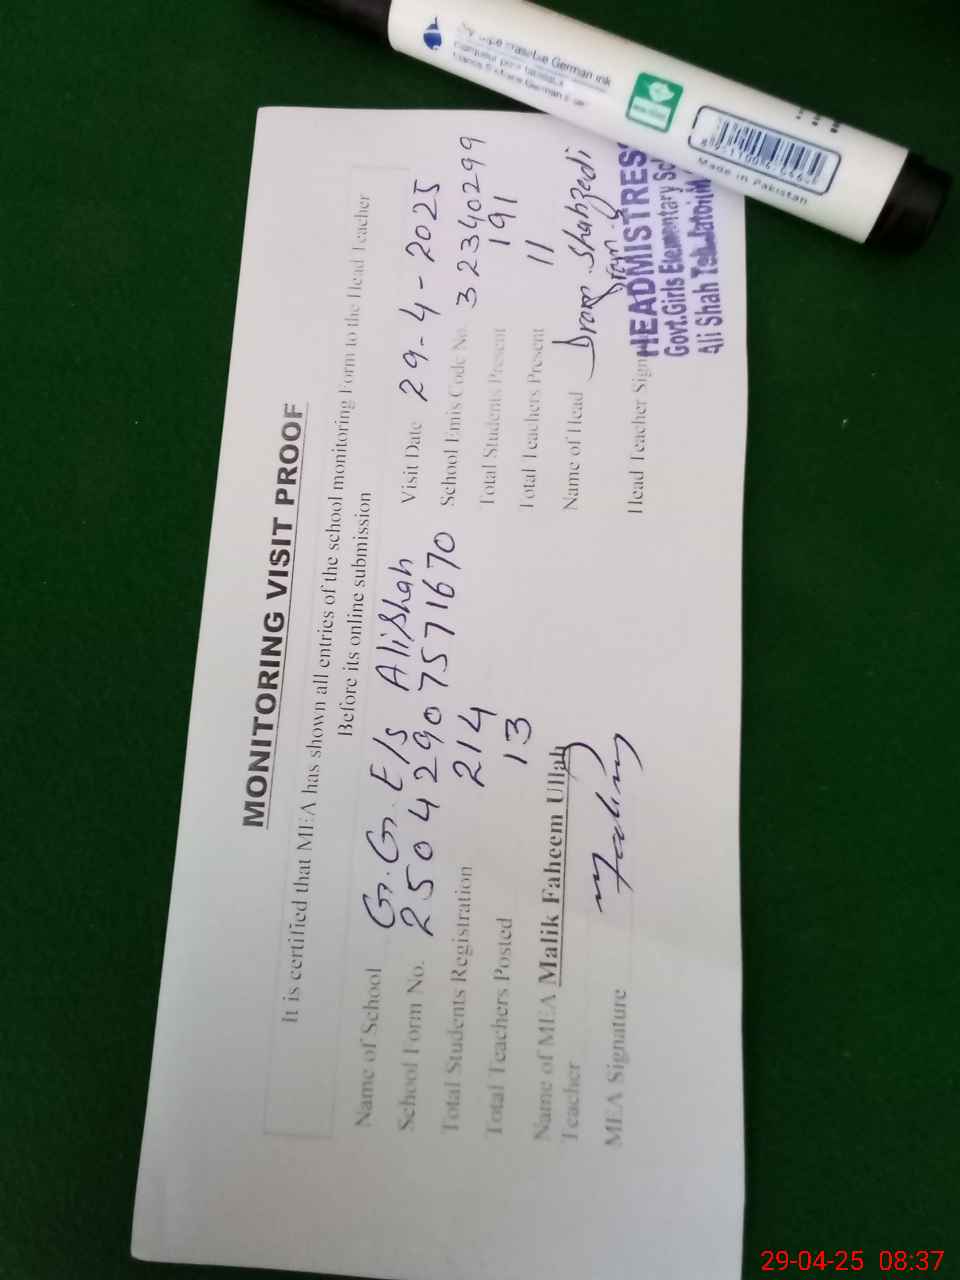 MONITORING VISIT PROOF
It is certified that MEA has shown all entries of the school monitoring Form to the Head Teacher
Before its online submission
Name of School G.G.E/s Ali Shah Visit Date 29-4-2025
School Form No. 25042907571670 School Emis Code No. 32340299
Total Students Registration 214 Total Students Present 191
Total Teachers Posted 13 Total Teachers Present 11
Name of MEA Malik Faheem Ullah Name of Head Shahzedi
Teacher
MEA Signature Head Teacher Sign
HEADMISTRES
Govt.Girls Elementary Sc
Ali Shah Teh.
German ink
Made in Pakistan
29-04-25 08:37